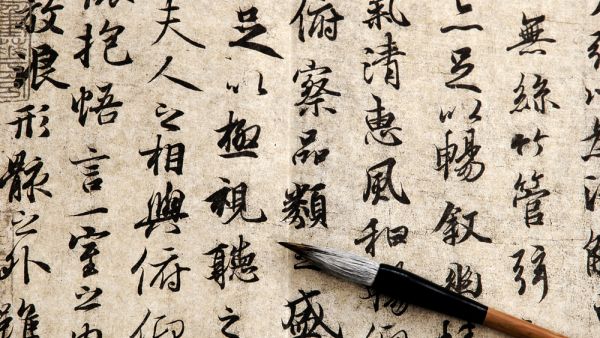 以為流
無絲竹管弦
亦足以暢叙幽情
氣清惠風和暢
俯察品類之盛
足以極視聽之
夫人之相與俯仰
抱悟言一室之內
放浪形骸之外雖